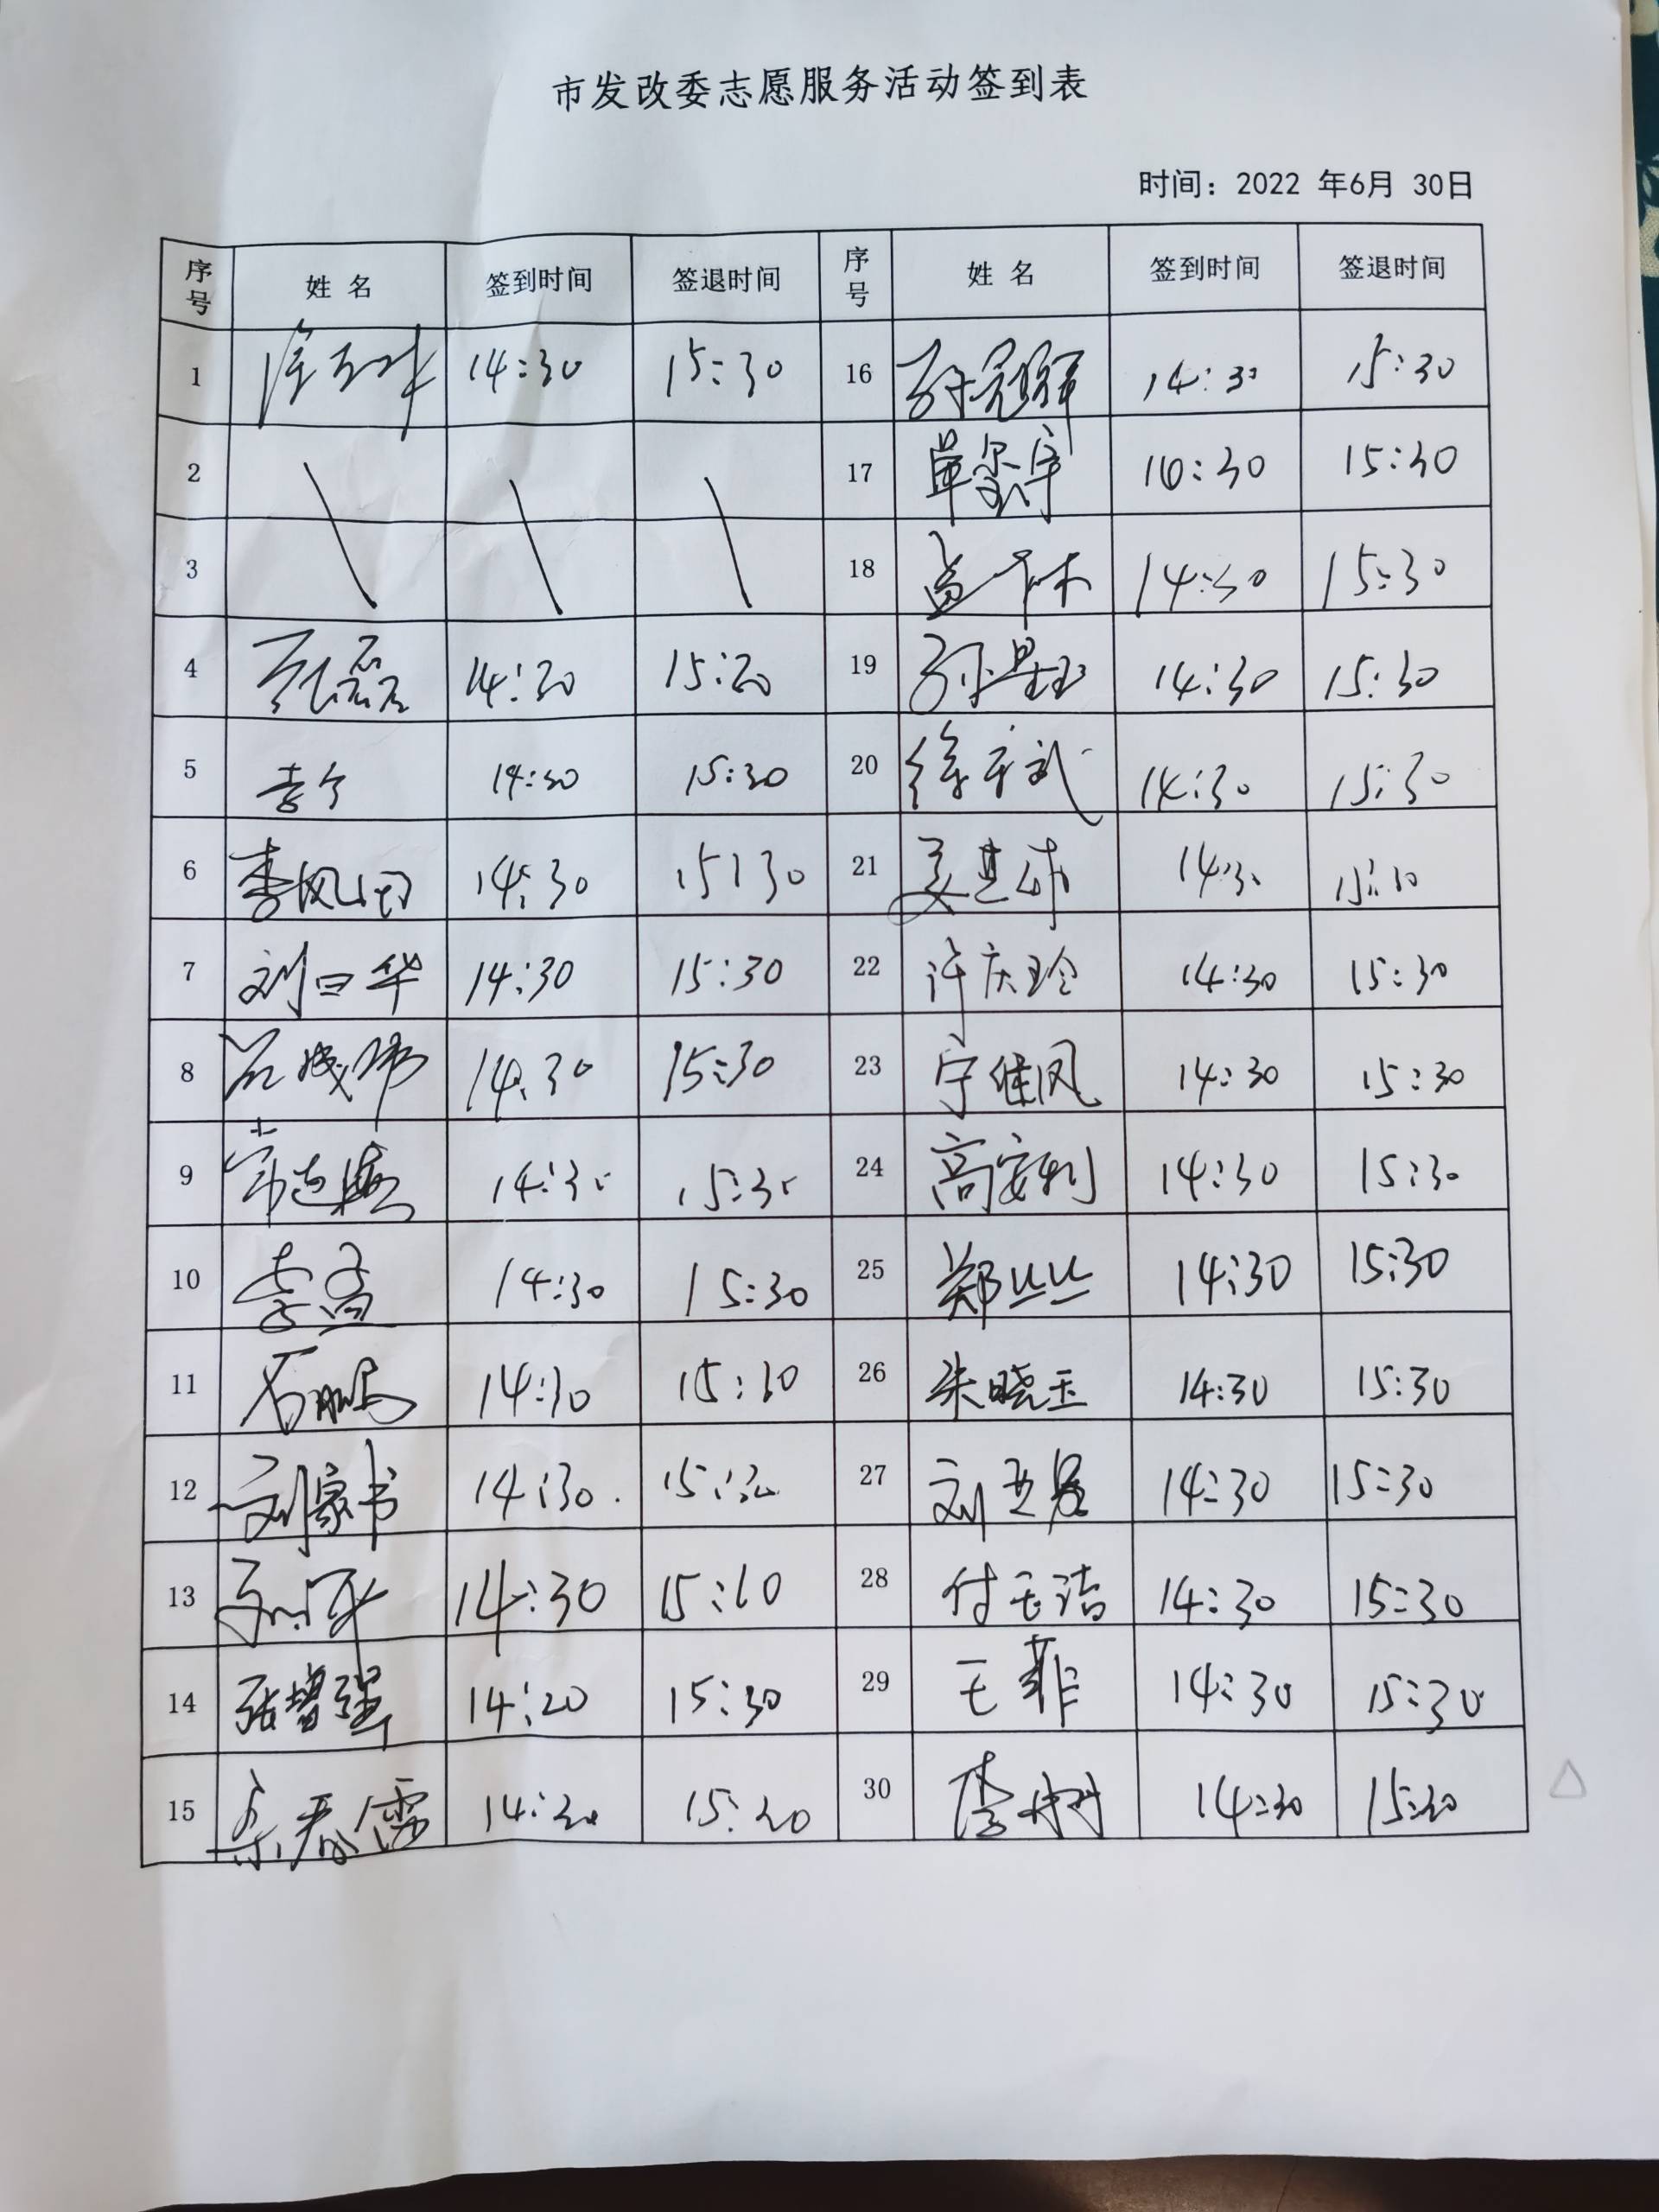 市发改委志愿服务活动签到表
时间：2022 年6月 30日
序号 姓 名 签到时间 签退时间 序号 姓 名 签到时间 签退时间
1 14:30 15:30 16 14:30 15:30
2 17 单玺宇 10:30 15:30
3 18 14:30 15:30
4 张磊 14:30 15:30 19 孙星玉 14:30 15:30
5 李宁 14:30 15:30 20 徐千武 14:30 15:30
6 李风田 14:30 15:30 21 14:30 15:30
7 刘曰华 14:30 15:30 22 许庆玲 14:30 15:30
8 14:30 15:30 23 宁佳凤 14:30 15:30
9 14:30 15:30 24 高安利 14:30 15:30
10 李孟 14:30 15:30 25 郑丝丝 14:30 15:30
11 石鹏 14:30 15:30 26 朱晓玉 14:30 15:30
12 刘家书 14:30. 15:30 27 14:30 15:30
13 14:30 15:10 28 付玉洁 14:30 15:30
14 张增强 14:20 15:30 29 王菲 14:30 15:30
15 14:30 15:30 30 李树 14:30 15:30